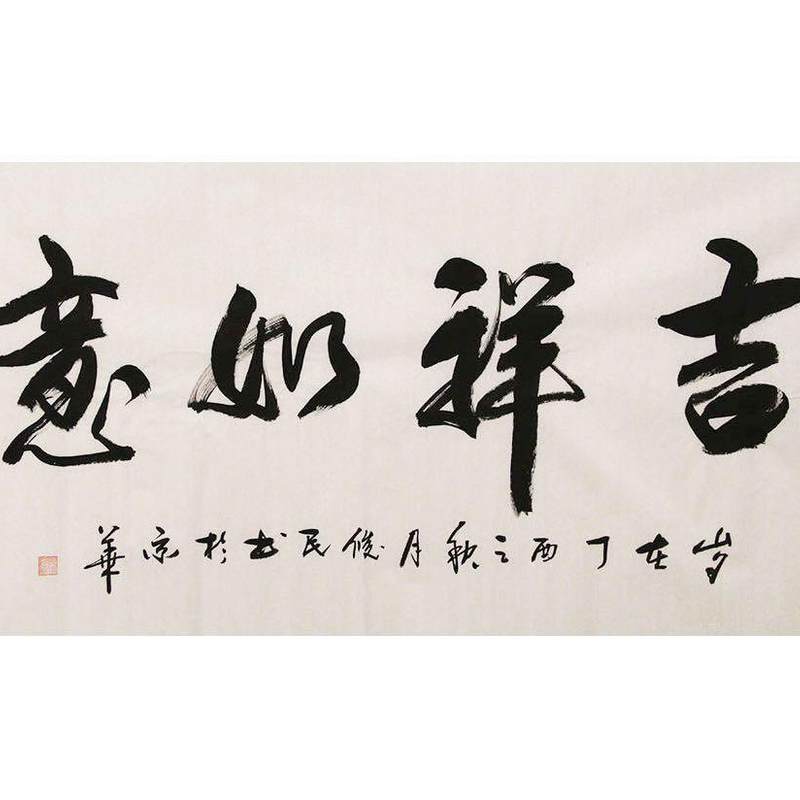 吉祥如意
岁在丁酉之秋月俊民书於京華